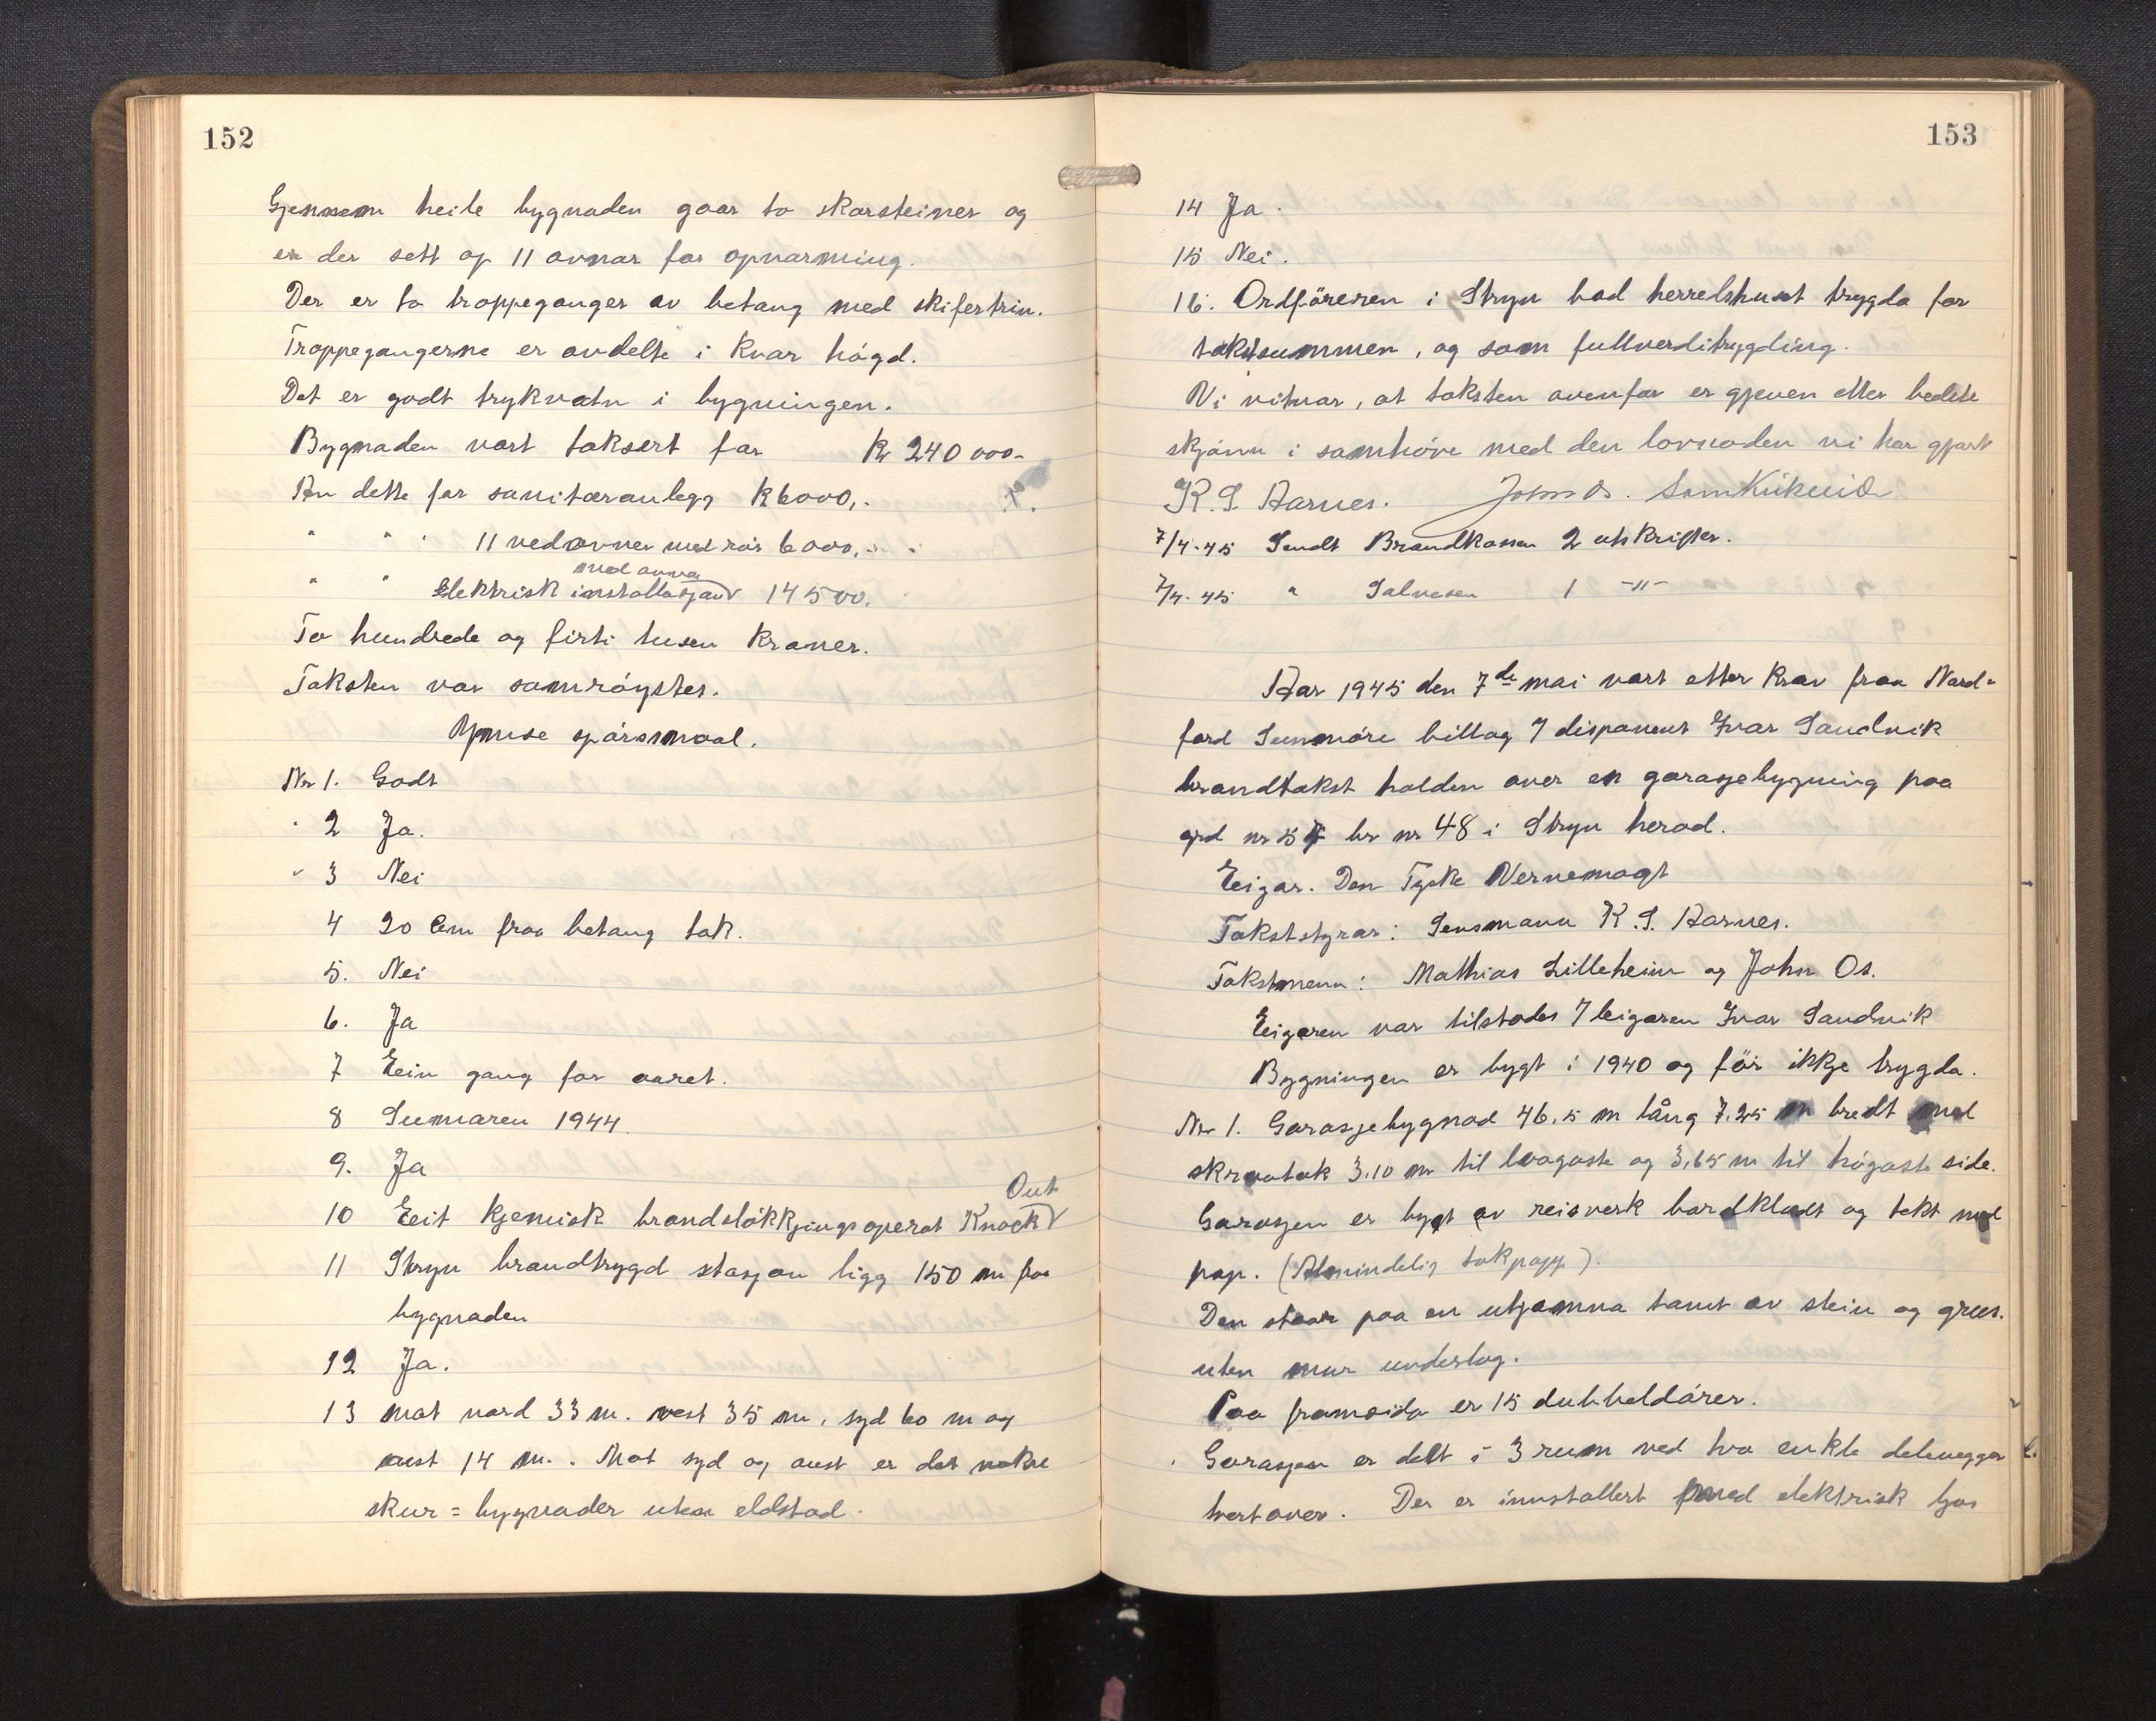 152
Gjennem heile bygnaden gaar to skorsteiner og
er der sett op 11 ovnar for opvarming.
Der er to troppeganger av betong med skifertrin.
Troppegangerne er avdelte i kvar högd.
Det er godt trykvatn i bygningen.
Bygnaden vart taksert for kr 240 000-
Av dette for sanitæranlegg kr 6000,-
" " " 11 vedovner med rör 6000,-
med ovna
" " Elektrisk installasjon 14500.
To hundrede og firti tusen kroner.
Taksten var samröystes.
Ymise spörsmaal.
Nr 1. Godt
" 2 Ja.
" 3 Nei
4 20 Cm fraa betong tak.
5. Nei
6. Ja
7 Ein gang for aaret.
8 Sumaren 1944.
9. Ja
Out
10 Eit kjemisk brandslökkjingsaperat Knock
11 Stryn brandtrygd stasjon ligg 150 m fra
bygnaden
12 Ja.
13 mot nord 33 m. vest 35 m, syd 60 m og
aust 14 m. . Mot syd og aust er det nokre
skur = bygnader uten eldstad.
153
14 Ja.
15 Nei.
16. Ordföreren i Stryn bad herredshuset trygda for
takstsummen, og som fullverditrygding.
Vi vitnar, at taksten ovenfor er gjeven etter bedste
skjönn i samhöve med den lovnaden vi har gjort
K. S. Aarnes. John Os.
7/4-45 Sendt Brandkassen 2 utskrifter.
7/4-45 " Salvesen 1 -"-
Aar 1945 den 7de mai vart etter krav fraa Nord-
fjord Sunnmöre billag v/ disponent Ivar Sandvik
brandtakst halden over en garasjebygning paa
grd nr 57 br nr 48 i Stryn herad.
Eigar. Den Tyske Vernemagt
Takststyrar: Lensmann K. S. Aarnes.
Takstmenn: Mathias Lilleheim og John Os.
Eigaren var tilstades v/ leigaren Ivar Sandvik
Bygningen er bygt i 1940 og för ikkje trygda.
Nr 1. Garasjebygnad 46,5 m lång 7.25 m bredt med
skraatak 3.10 m til laagaste og 3,65 m til högaste side.
Garasjen er bygt av reisverk bordkledt og tekt med
pap. (Almindelig takpapp).
Den staar paa en utjamna tomt av stein og grus.
uten mur underlag.
Paa framsida er 15 dubbeldörer.
Garasjen er delt i 3 rum ved tvo enkle delevegger
tvert over. Der er innstallert med elektrisk ljos